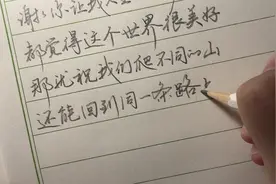 谢谢你让我
都觉得这个世界很美好
那就祝我们爬不同的山
还能回到同一条路上